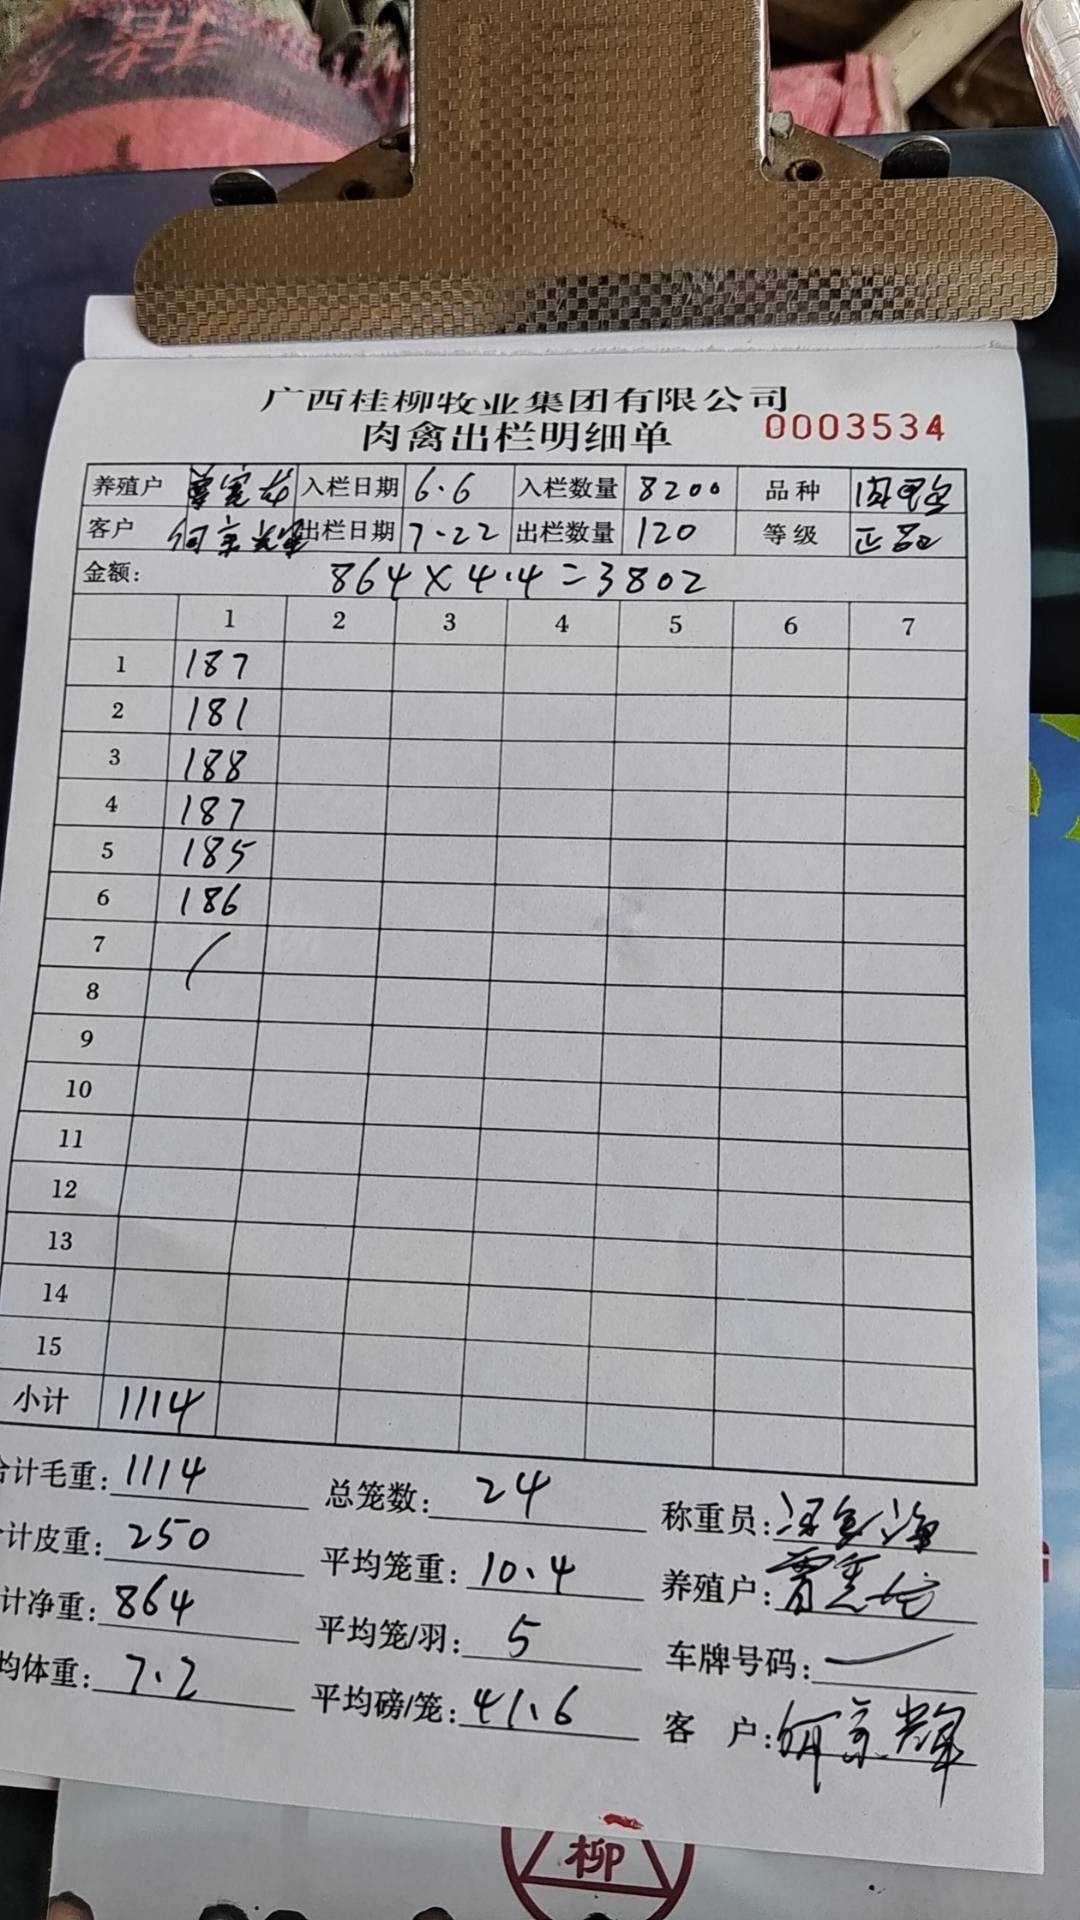 广西桂柳牧业集团有限公司
肉禽出栏明细单 0003534
养殖户 入栏日期 6.6 入栏数量 8200 品种
客户 何京辉 出栏日期 7.22 出栏数量 120 等级 正品
金额: 864×4.4=3802
1 2 3 4 5 6 7
1 187
2 181
3 188
4 187
5 185
6 186
7 /
8
9
10
11
12
13
14
15
小计 1114
合计毛重: 1114 总笼数: 24 称重员:
计皮重: 250 平均笼重: 10.4 养殖户:
计净重: 864 平均笼/羽: 5 车牌号码: —
均体重: 7.2 平均磅/笼: 41.6 客 户: 何京辉
柳